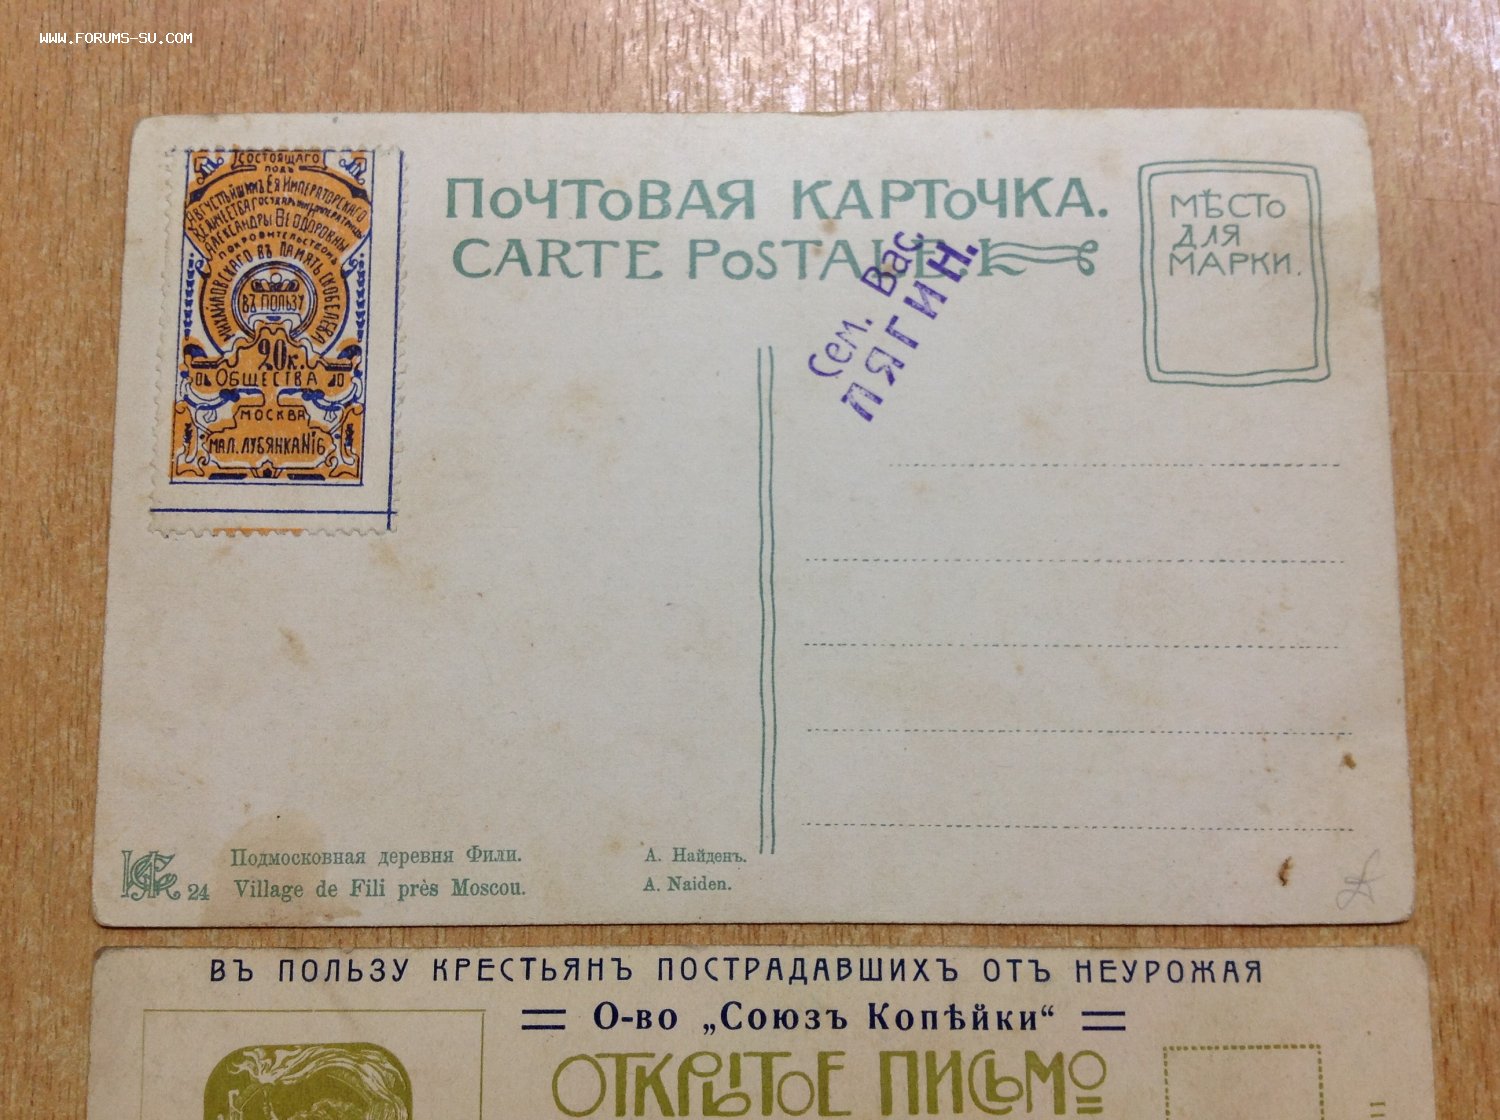 WWW.FORUMS-SU.COM
СОСТОЯЩАГО
ПОДЪ
АВГУСТѢЙШИМЪ ЕЯ ИМПЕРАТОРСКАГО
ВЕЛИЧЕСТВА ГОСУДАРЫНИ ИМПЕРАТРИЦЫ
АЛЕКСАНДРЫ ѲЕОДОРОВНЫ
ПОКРОВИТЕЛЬСТВОМЪ
МИХАЙЛОВСКАГО ВЪ ПАМЯТЬ СКОБЕЛЕВА
ВЪ ПОЛЬЗУ
20к.
ОБЩЕСТВА
МОСКВА
МАЛ. ЛУБЯНКА №16
ПОЧТОВАЯ КАРТОЧКА.
CARTE POSTALE
МѢСТО
ДЛЯ
МАРКИ.
Сем. Вас.
ПЯГИН.
24
Подмосковная деревня Фили.
Village de Fili près Moscou.
А. Найденъ.
A. Naiden.
ВЪ ПОЛЬЗУ КРЕСТЬЯНЪ ПОСТРАДАВШИХЪ ОТЪ НЕУРОЖАЯ
О-во „Союзъ Копѣйки“
ОТКРЫТОЕ ПИСЬМО